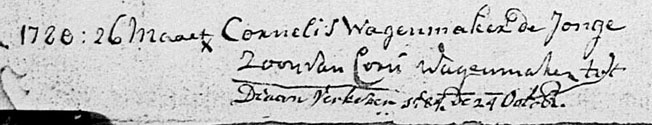 1728: 26 Maart Cornelis Wagenmaker de Jonge
Zoon van Corn Wagenmaker tot
Diacon Verkosen den 24 Octob.